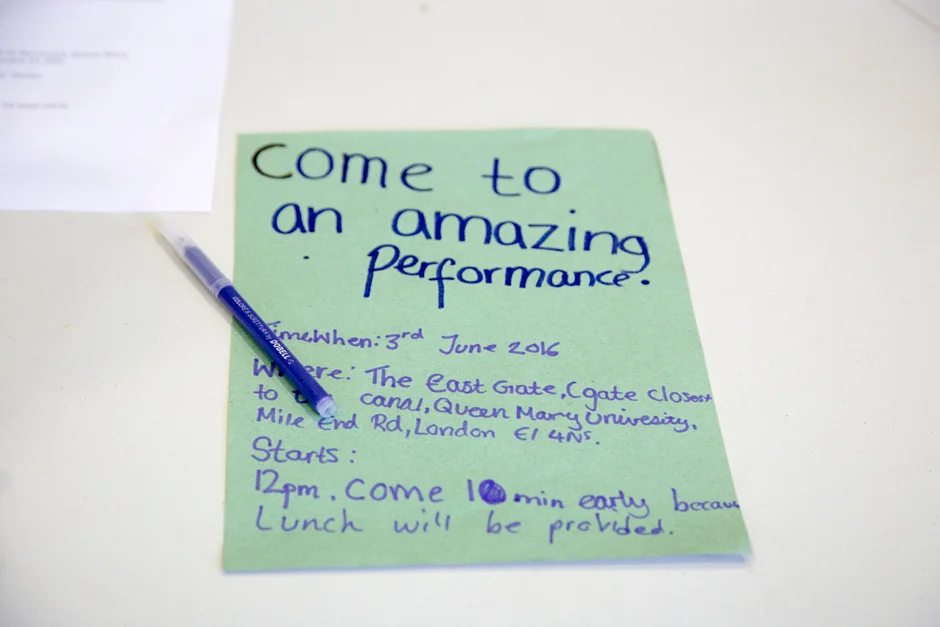 Come to
an amazing
performance.
Time,When: 3rd June 2016
Where: The East Gate, (gate closest
to canal, Queen Mary Univeresity,
Mile End Rd, London E1 4NS.
Starts:
12pm. Come 10 min early becau
Lunch will be provided.
DOBELL